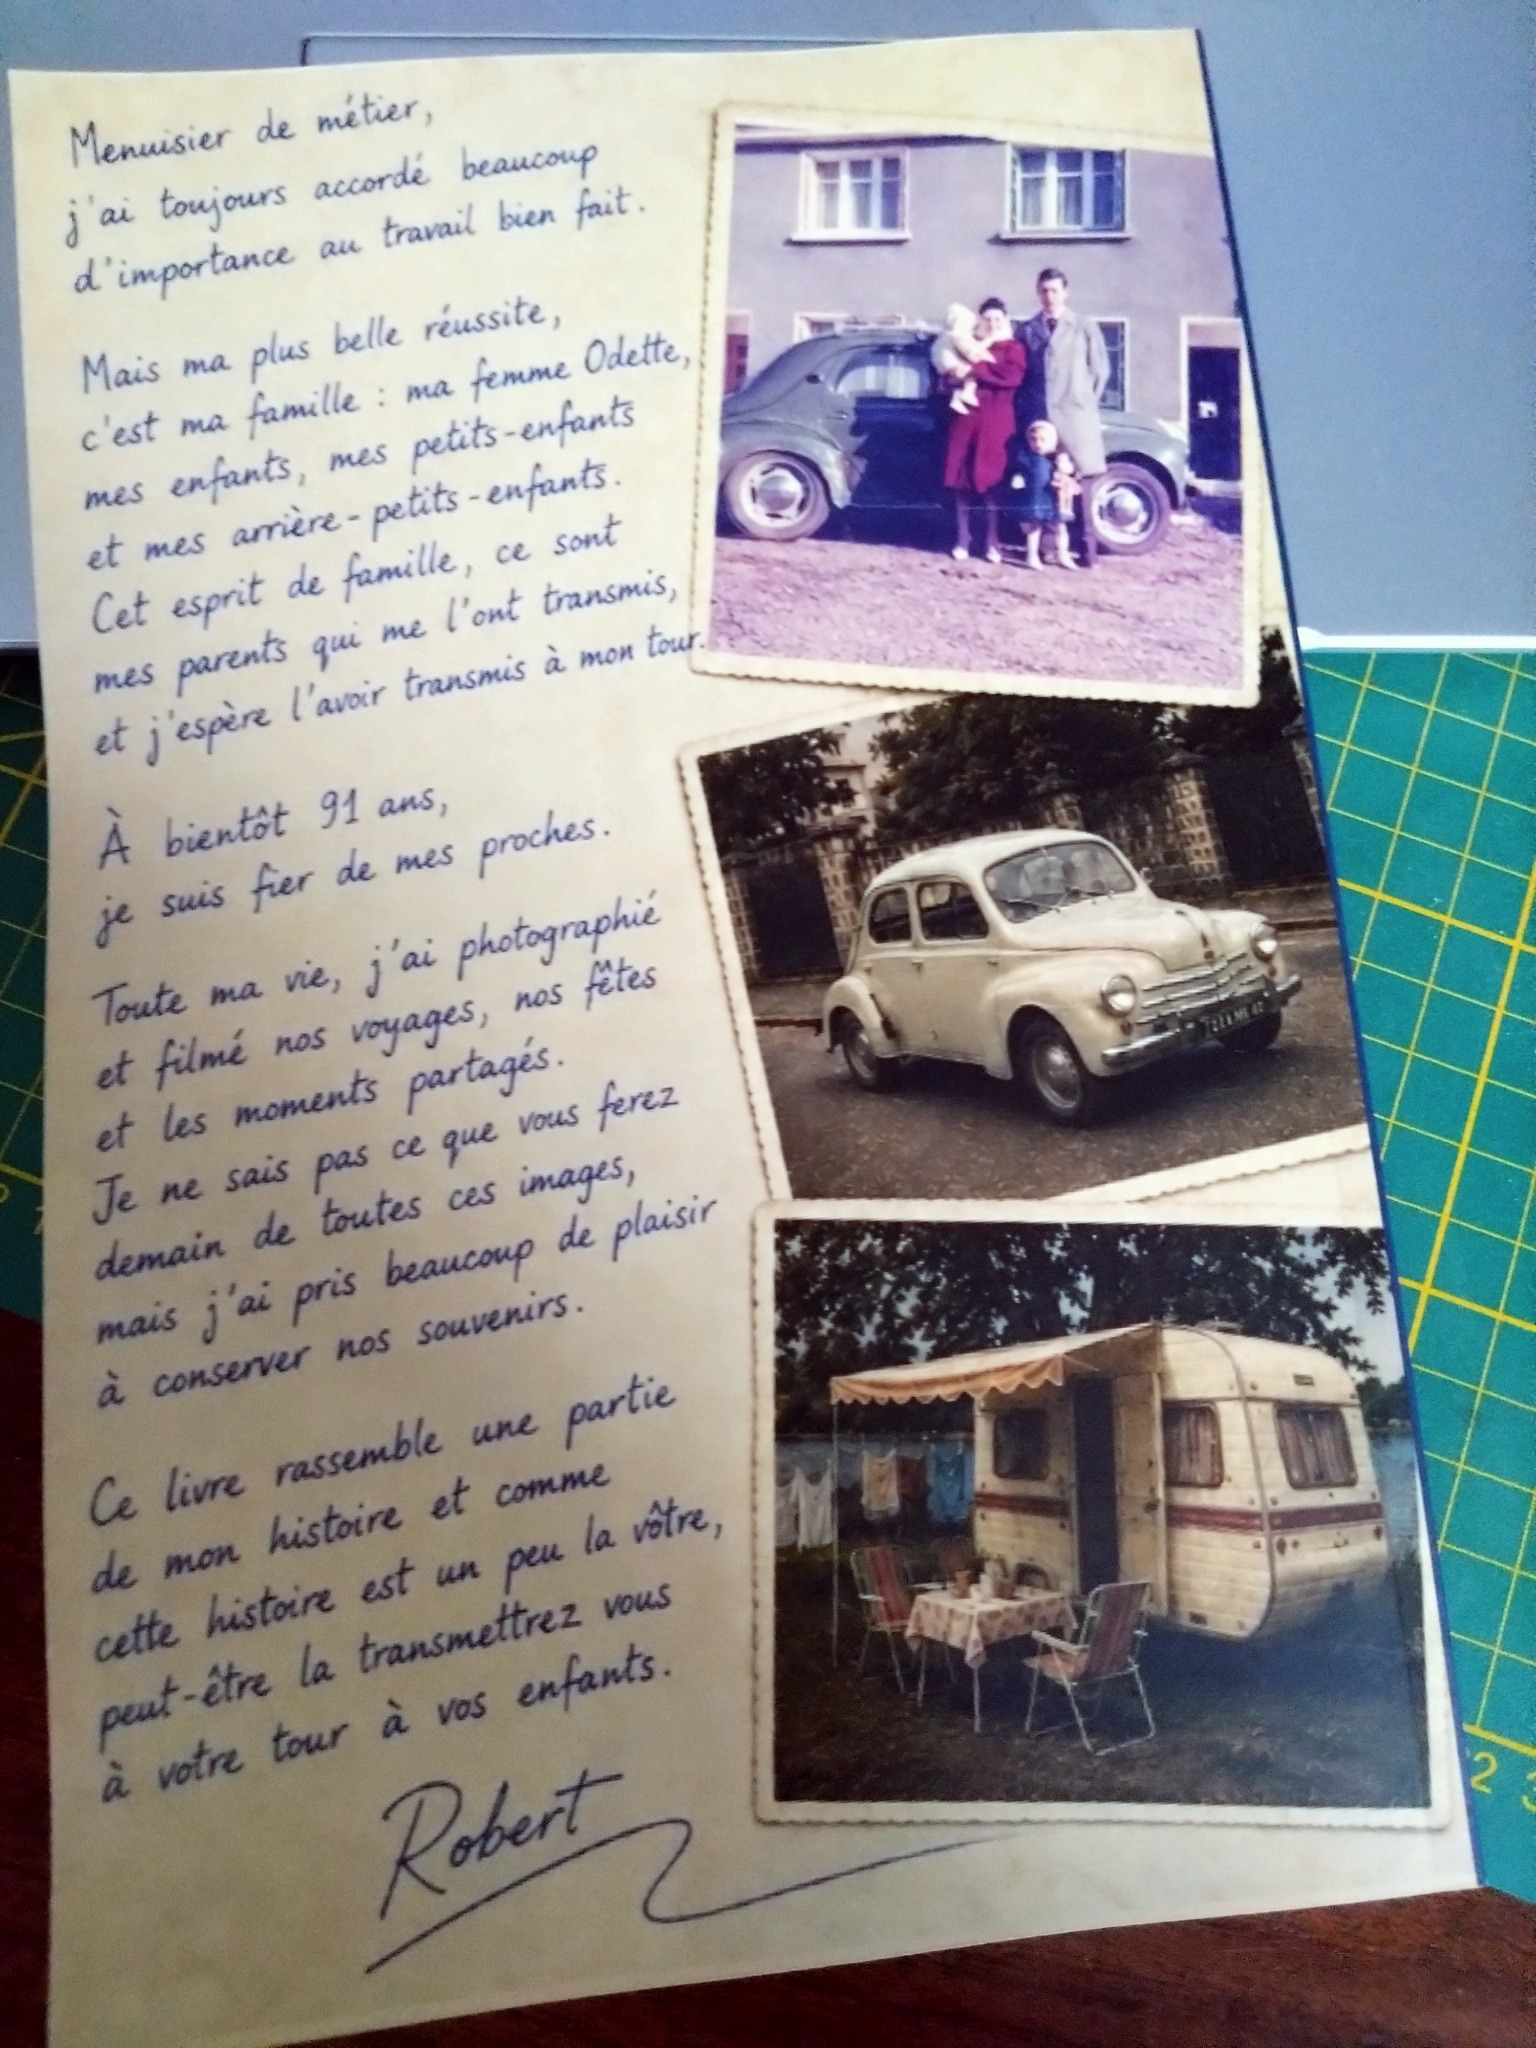 Menuisier de métier,
j'ai toujours accordé beaucoup
d'importance au travail bien fait.
Mais ma plus belle réussite,
c'est ma famille : ma femme Odette,
mes enfants, mes petits-enfants
et mes arrière-petits-enfants.
Cet esprit de famille, ce sont
mes parents qui me l'ont transmis,
et j'espère l'avoir transmis à mon tour.
À bientôt 91 ans,
je suis fier de mes proches.
Toute ma vie, j'ai photographié
et filmé nos voyages, nos fêtes
et les moments partagés.
Je ne sais pas ce que vous ferez
demain de toutes ces images,
mais j'ai pris beaucoup de plaisir
à conserver nos souvenirs.
Ce livre rassemble une partie
de mon histoire et comme
cette histoire est un peu la vôtre,
peut-être la transmettrez vous
à votre tour à vos enfants.
Robert
2 3